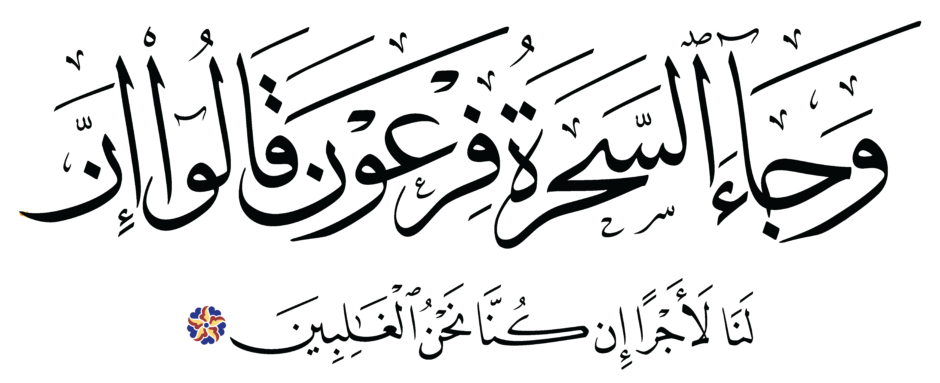 وَجَآءَ ٱلسَّحَرَةُ فِرْعَوْنَ قَالُوٓا۟ إِنَّ
لَنَا لَأَجْرًا إِن كُنَّا نَحْنُ ٱلْغَـٰلِبِينَ